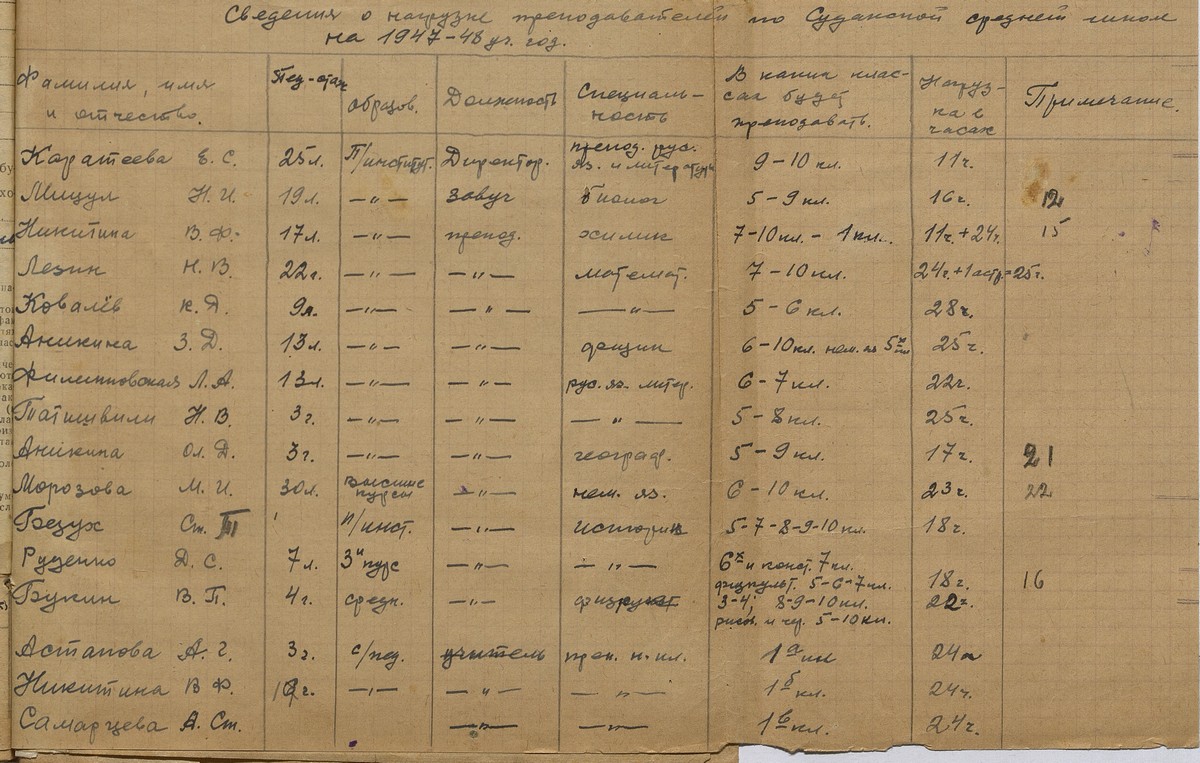 Сведения о нагрузке преподавателей по Суданской средней школе
на 1947-48 уч. год.
Фамилия, имя и отчество. Пед-стаж Образов. Должность Специальность В каких классах будет преподавать. Нагрузка в часах Примечание.
Каратеева Е. С. 25л. П/институт. Директор. препод. рус. яз. и литературы 9-10 кл. 11ч.
Мицул Н. И. 19л. —"— завуч биолог 5-9 кл. 16ч. 12
Никитина В. Ф. 17л. —"— препод. химик 7-10 кл. - 1 кл. 11ч. + 24ч. 15
Лезин Н. В. 22г. —"— —"— математ. 7-10 кл. 24ч. + 1 астр. = 25ч.
Ковалёв К. Д. 9л. —"— —"— —"— 5-6 кл. 28ч.
Аникина З. Д. 13л. —"— —"— физик 6-10 кл. нем. яз 5х кл 25ч.
Филипповская Л. А. 13л. —"— —"— рус. яз. литер. 6-7 кл. 22ч.
Татишвили Н. В. 3г. —"— —"— —"— 5-8 кл. 25ч.
Аникина Ол. Д. 3г. —"— —"— географ. 5-9 кл. 17ч. 21
Морозова М. И. 30л. высшие курсы —"— нем. яз. 6-10 кл. 23ч. 22
Безух Ст. П/инст. —"— историк 5-7-8-9-10 кл. 18ч.
Руденко Д. С. 7л. 3й курс —"— —"— 6х и конст. 7 кл. физкульт. 5-6-7 кл. 18ч. 16
Букин В. П. 4г. средн. —"— физрук 3-4; 8-9-10 кл. рисов. и чер. 5-10 кл. 22ч.
Астапова А. Г. 3г. с/пед. учитель преп. н. кл. 1а кл 24ч
Никитина В Ф. —"— —"— —"— 1б кл. 24ч.
Самарцева А. Ст. —"— —"— 1в кл. 24ч.